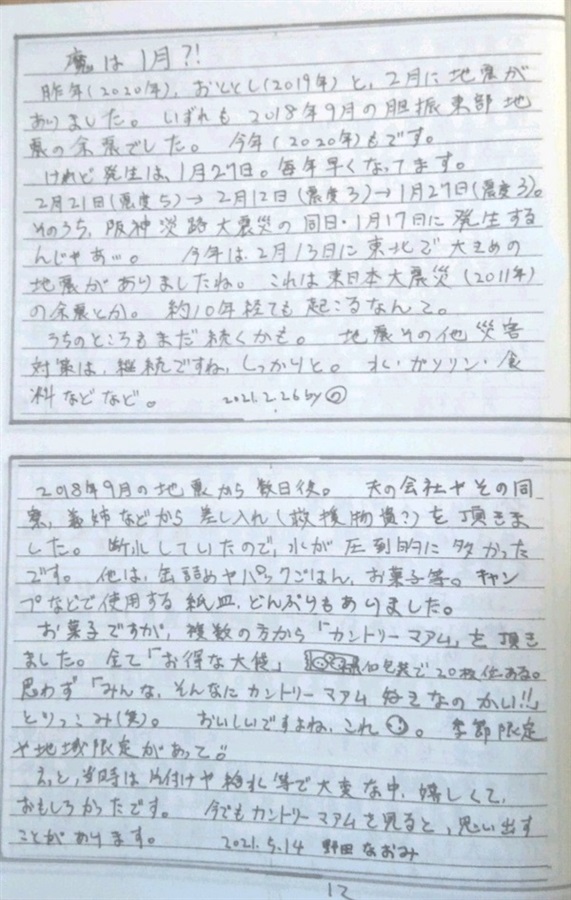 魔は1月?!
昨年(2020年)、おととし(2019年)と、2月に地震が
ありました。いずれも2018年9月の胆振東部地
震の余震でした。 今年(2020年)もです。
けれど発生は、1月27日。毎年早くなってます。
2月21日(震度5)→2月12日(震度3)→1月27日(震度3)。
そのうち、阪神淡路大震災の同日・1月17日に発生する
んじゃあ…。 今年は、2月13日に東北で大きめの
地震がありましたね。これは東日本大震災(2011年)
の余震とか。 約10年経ても起こるなんて。
うちのところもまだ続くかも。 地震その他災害
対策は、継続ですね、しっかりと。水・ガソリン・食
料などなど。 2021.2.26 by の
2018年9月の地震から数日後。 夫の会社やその同
寮、義姉などから差し入れ(救援物資?)を頂きま
した。 断水していたので、水が圧倒的に多かった
です。 他は、缶詰めやパックごはん、お菓子等。キャン
プなどで使用する紙皿、どんぶりもありました。
お菓子ですが、複数の方から「カントリーマアム」を頂き
ました。全て「お得な大袋」 個包装で20枚位ある。
思わず「みんな、そんなにカントリーマアム好きなのかい!!」
とつっこみ(笑)。 おいしいですよね、これ。 季節限定
や地域限定があって。
えっと、当時は片付けや給水等で大変な中、嬉しくて、
おもしろかったです。 今でもカントリーマアムを見ると、思い出す
ことがあります。 2021.5.14 野田なおみ
12